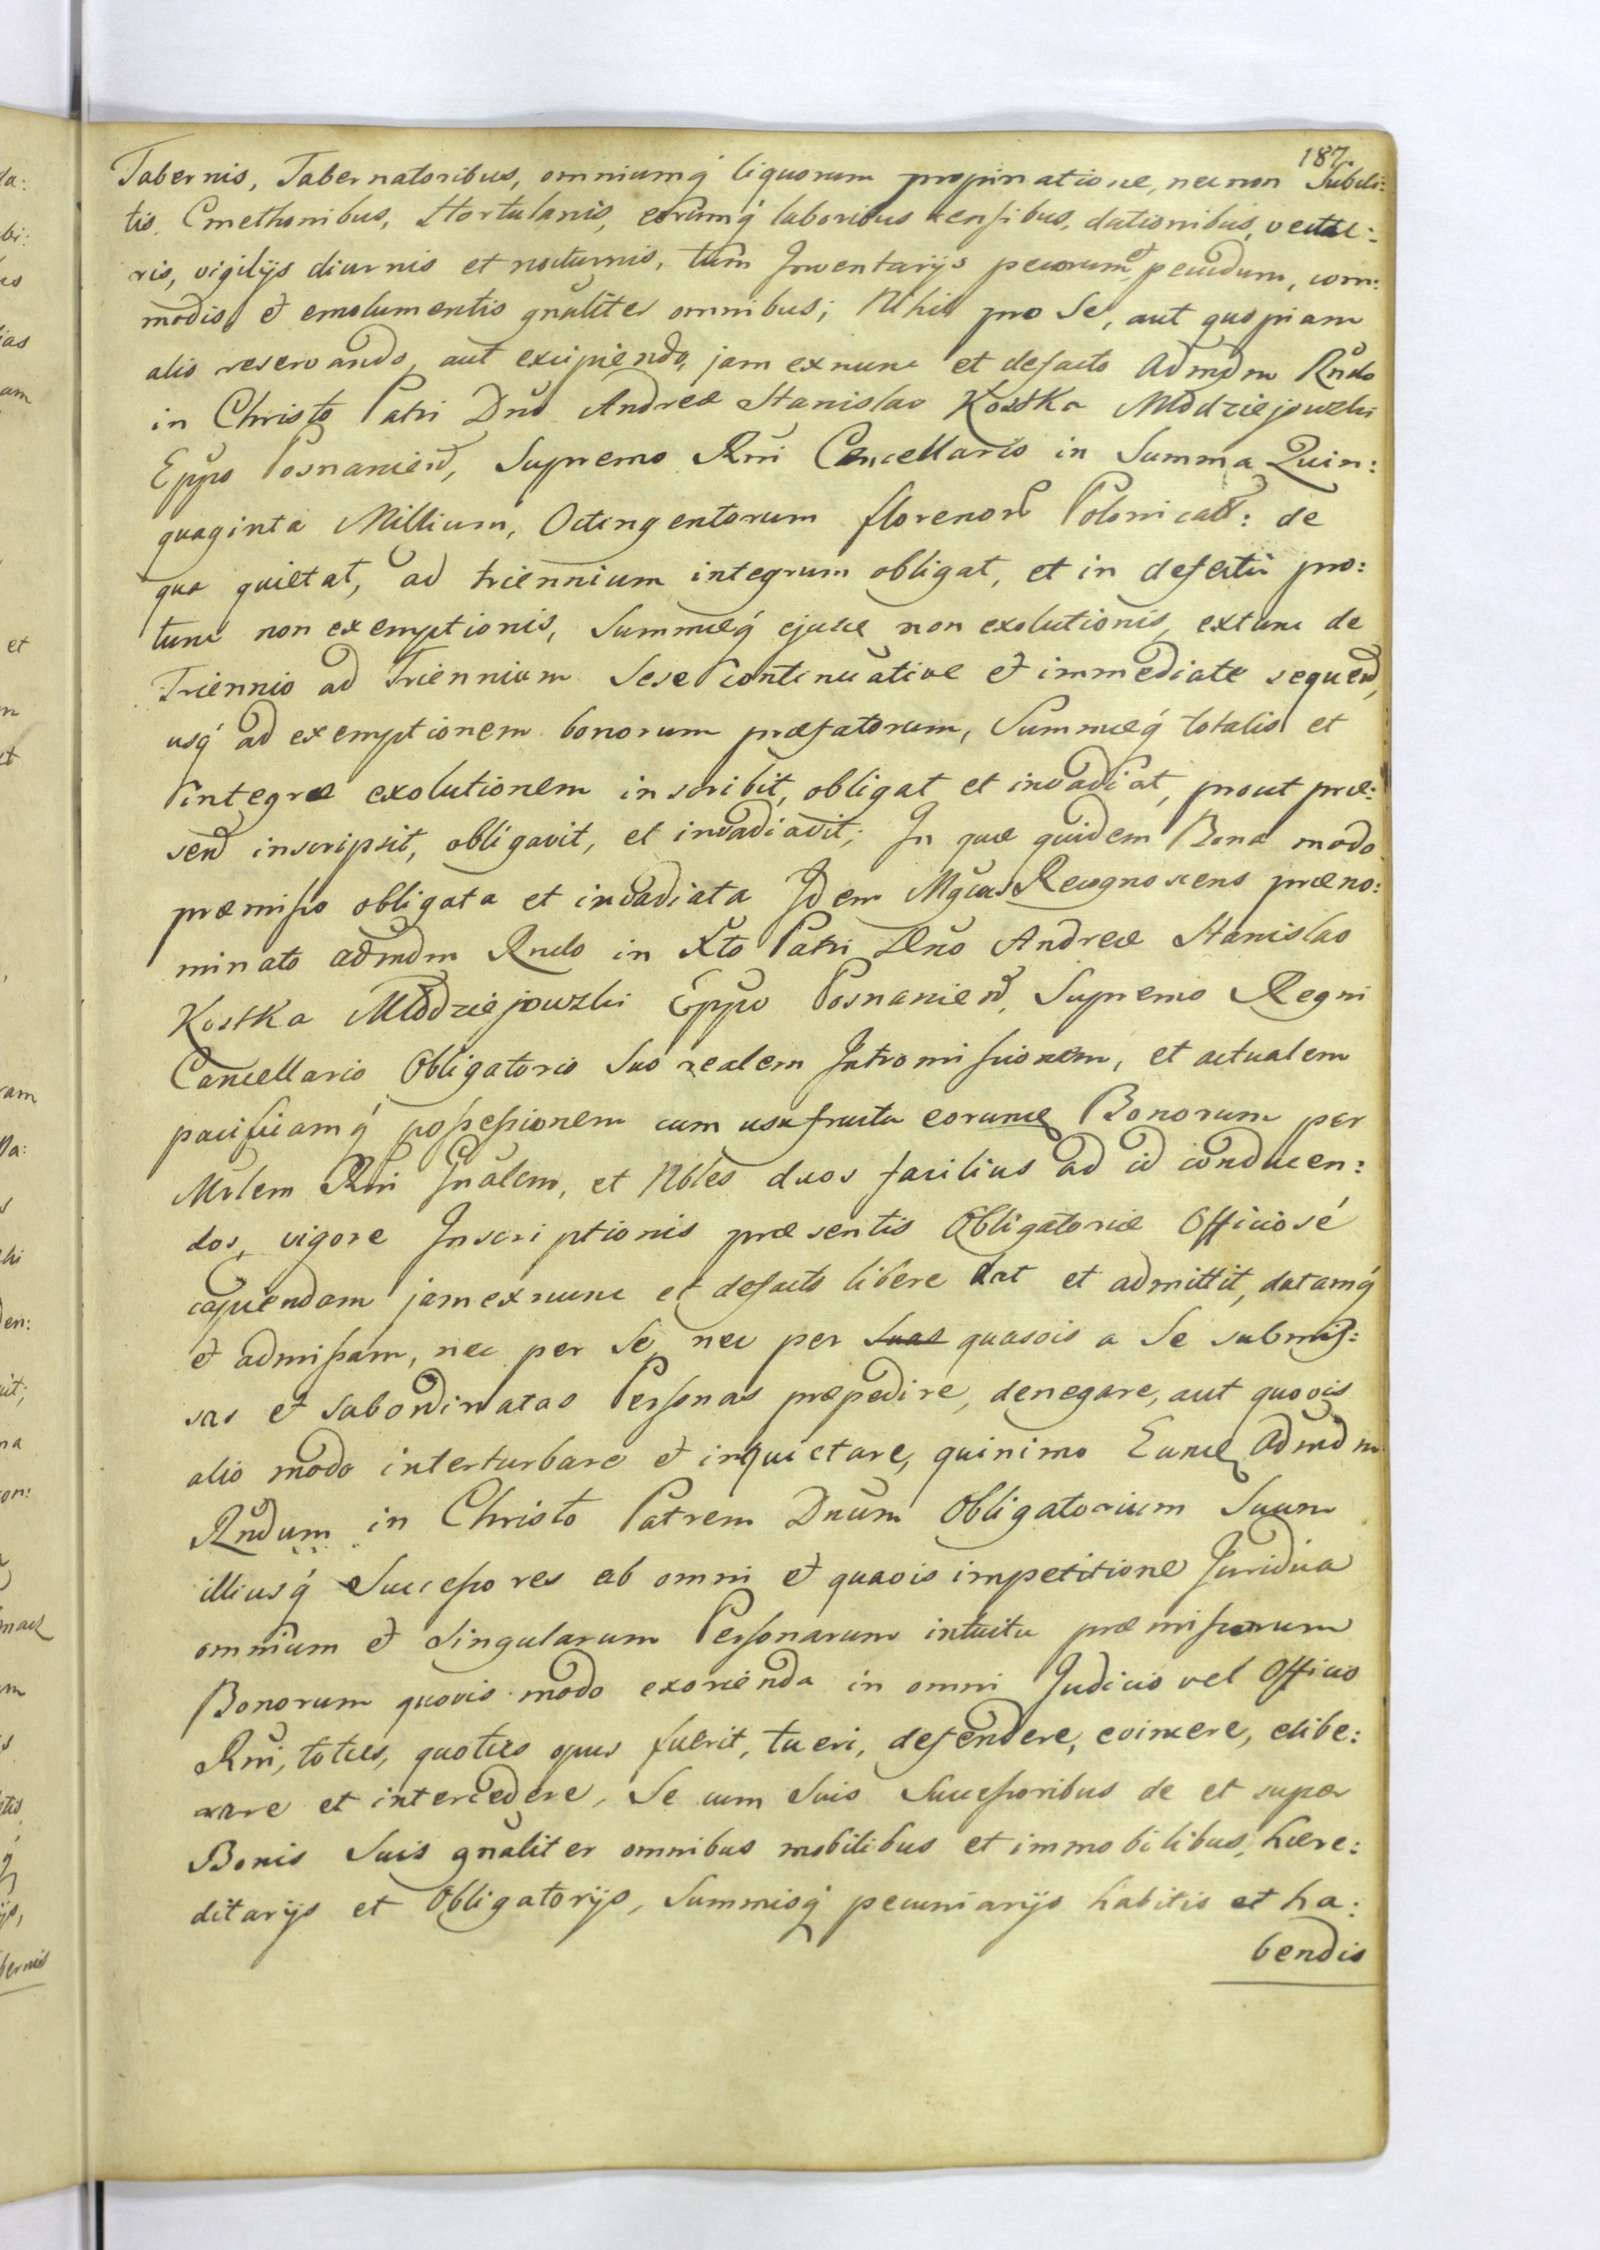 187
Tabernis, Tabernatoribus, omniumq́ liquorum propinatione, necnon Subdi:
tis, Cmethonibus, Hortulanis, eorumq́ laboribus censibus, dationibus, vectu:
ris, vigilijs diurnis et nocturnis, tum Inventarijs pecorum et pecudum, com:
modis et emolumentis gnaliter omnibus; Nihil pro Se, aut quopiam
alio reservando, aut excipiendo, jam exnunc et defacto Admdm Rndo
in Christo Patri Dno Andreæ Stanislao Kostka Młodziejowski
Eppo Posnanien, Supremo Rni Cancellario in Summa Quin:
quaginta Millium, Octingentorum florenor Polonical: de
qua quietat, ad triennium integrum obligat, et in defectu pro:
tunc non exemptionis, Summæq́ ejusd non exolutionis, extunc de
Triennio ad Triennium Sese continuative et immediate sequend,
usq́ ad exemptionem bonorum præfatorum, Summæq́ totalis et
integræ exolutionem inscribit, obligat et invadiat, prout præ:
send inscripsit, obligavit, et invadiavit; In quæ quidem Bona modo
præmisso obligata et invadiata Idem Mgcus Recognoscens præno:
minato admdm Rndo in Xto Patri Dno Andreæ Stanislao
Kostka Młodziejowski Eppo Posnanien, Supremo Regni
Cancellario Obligatorio Suo realem Intromissionem, et actualem
pacificamq́ possessionem cum usufructu eorund Bonorum per
Mrlem Rni Gnalem, et Nobles duos facilius ad id conducen:
dos, vigore Inscriptionis præsentis Obligatoriæ Officiosé
capiendam jam exnunc et defacto libere dat et admittit, datamq́
et admissam, nec per Se, nec per quasvis a Se submis:
sas et subordinatas Personas præpedire, denegare, aut quovis
alio modo interturbare et inquietare, quinimo Eund Admdm
Rndum in Christo Patrem Dnum Obligatorium Suum
illiusq́ Successores ab omni et quavis impetitione Juridica
omnium et Singularum Personarum intuitu præmissorum
Bonorum quovis modo exorienda in omni Judicio vel Officio
Rni, toties, quoties opus fuerit, tueri, defendere, evincere, elibe:
rare et intercedere, Se cum Suis Successoribus de et super
Bonis Suis gnaliter omnibus mobilibus et immobilibus, hære:
ditarijs et Obligatorijs, Summisq́ pecuniarijs habitis et ha:
bendis